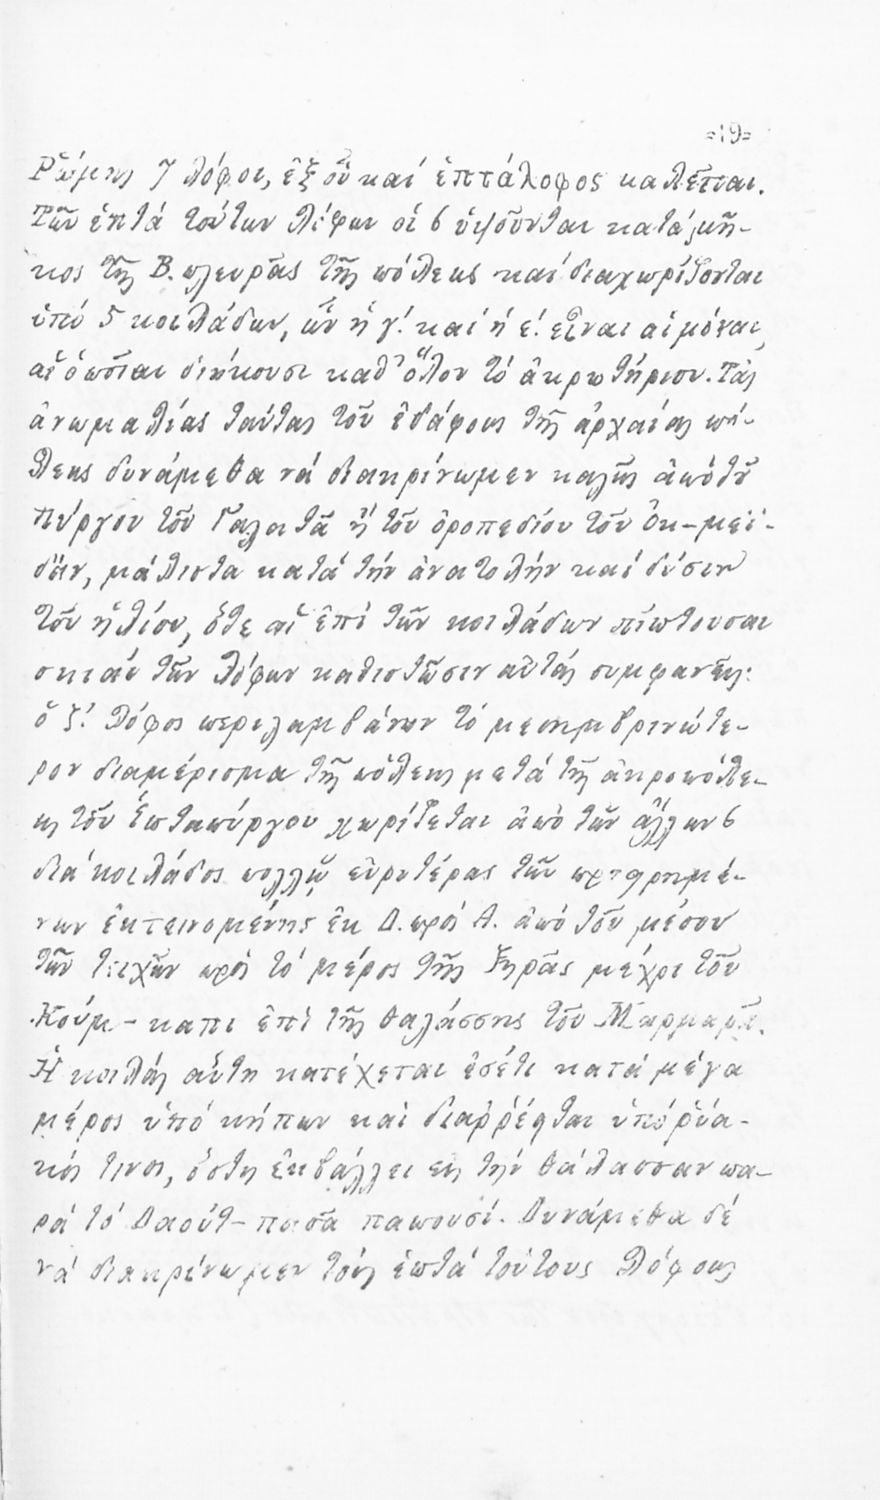 =19=
Ρώμης 7 λόφοι, ἐξ οὗ καί ἑπτάλοφος καλεῖται.
Τῶν ἑπτά τούτων λόφων οἱ 6 ὑψοῦνται κατά μῆ-
κος τῆς Β. πλευρᾶς τῆς πόλεως καί διαχωρίζονται
ὑπό 5 κοιλάδων, ὧν ἡ γ΄. καί ἡ ε΄. εἶναι αἱ μόναι,
αἱ ὁποῖαι διήκουσι καθ' ὅλον τό ἀκρωτήριον. Τάς
ἀνωμαλίας ταύτας τοῦ ἐδάφους τῆς ἀρχαίας πό-
λεως δυνάμεθα νά διακρίνωμεν καλῶς ἀπό τοῦ
πύργου τοῦ Γαλατᾶ ἤ τοῦ ὀροπεδίου τοῦ Ὀκ-μεϊ-
δάν, μάλιστα κατά τήν ἀνατολήν καί δύσιν
τοῦ ἡλίου, ὅτε αἱ ἐπί τῶν κοιλάδων πίπτουσαι
σκιαί τῶν λόφων καθιστῶσιν αὐτάς συμφανεῖς·
ὁ ζ΄. λόφος περιλαμβάνων τό μεσημβρινώτε-
ρον διαμέρισμα τῆς πόλεως μετά τῆς ἀκροπόλε-
ως τοῦ Ἑπταπύργου χωρίζεται ἀπό τῶν ἄλλων 6
διά κοιλάδος πολλῷ εὐρυτέρας τῶν προῃρημέ-
νων ἐκτεινομένης ἐκ Δ. πρός Α. ἀπό τοῦ μέσου
τῶν τειχῶν πρός τό μέρος τῆς Ξηρᾶς μέχρι τοῦ
Κούμ-καπι ἐπί τῆς θαλάσσης τοῦ Μαρμαρᾶ.
Ἡ κοιλάς αὕτη κατέχεται εἰσέτι κατά μέγα
μέρος ὑπό κήπων καί διαρρέεται ὑπό ῥύα-
κός τινος, ὅστις ἐκβάλλει εἰς τήν θάλασσαν πα-
ρά τό Δαούτ-πασᾶ παπουσί. Δυνάμεθα δέ
νά διακρίνωμεν τούς ἑπτά τούτους λόφους